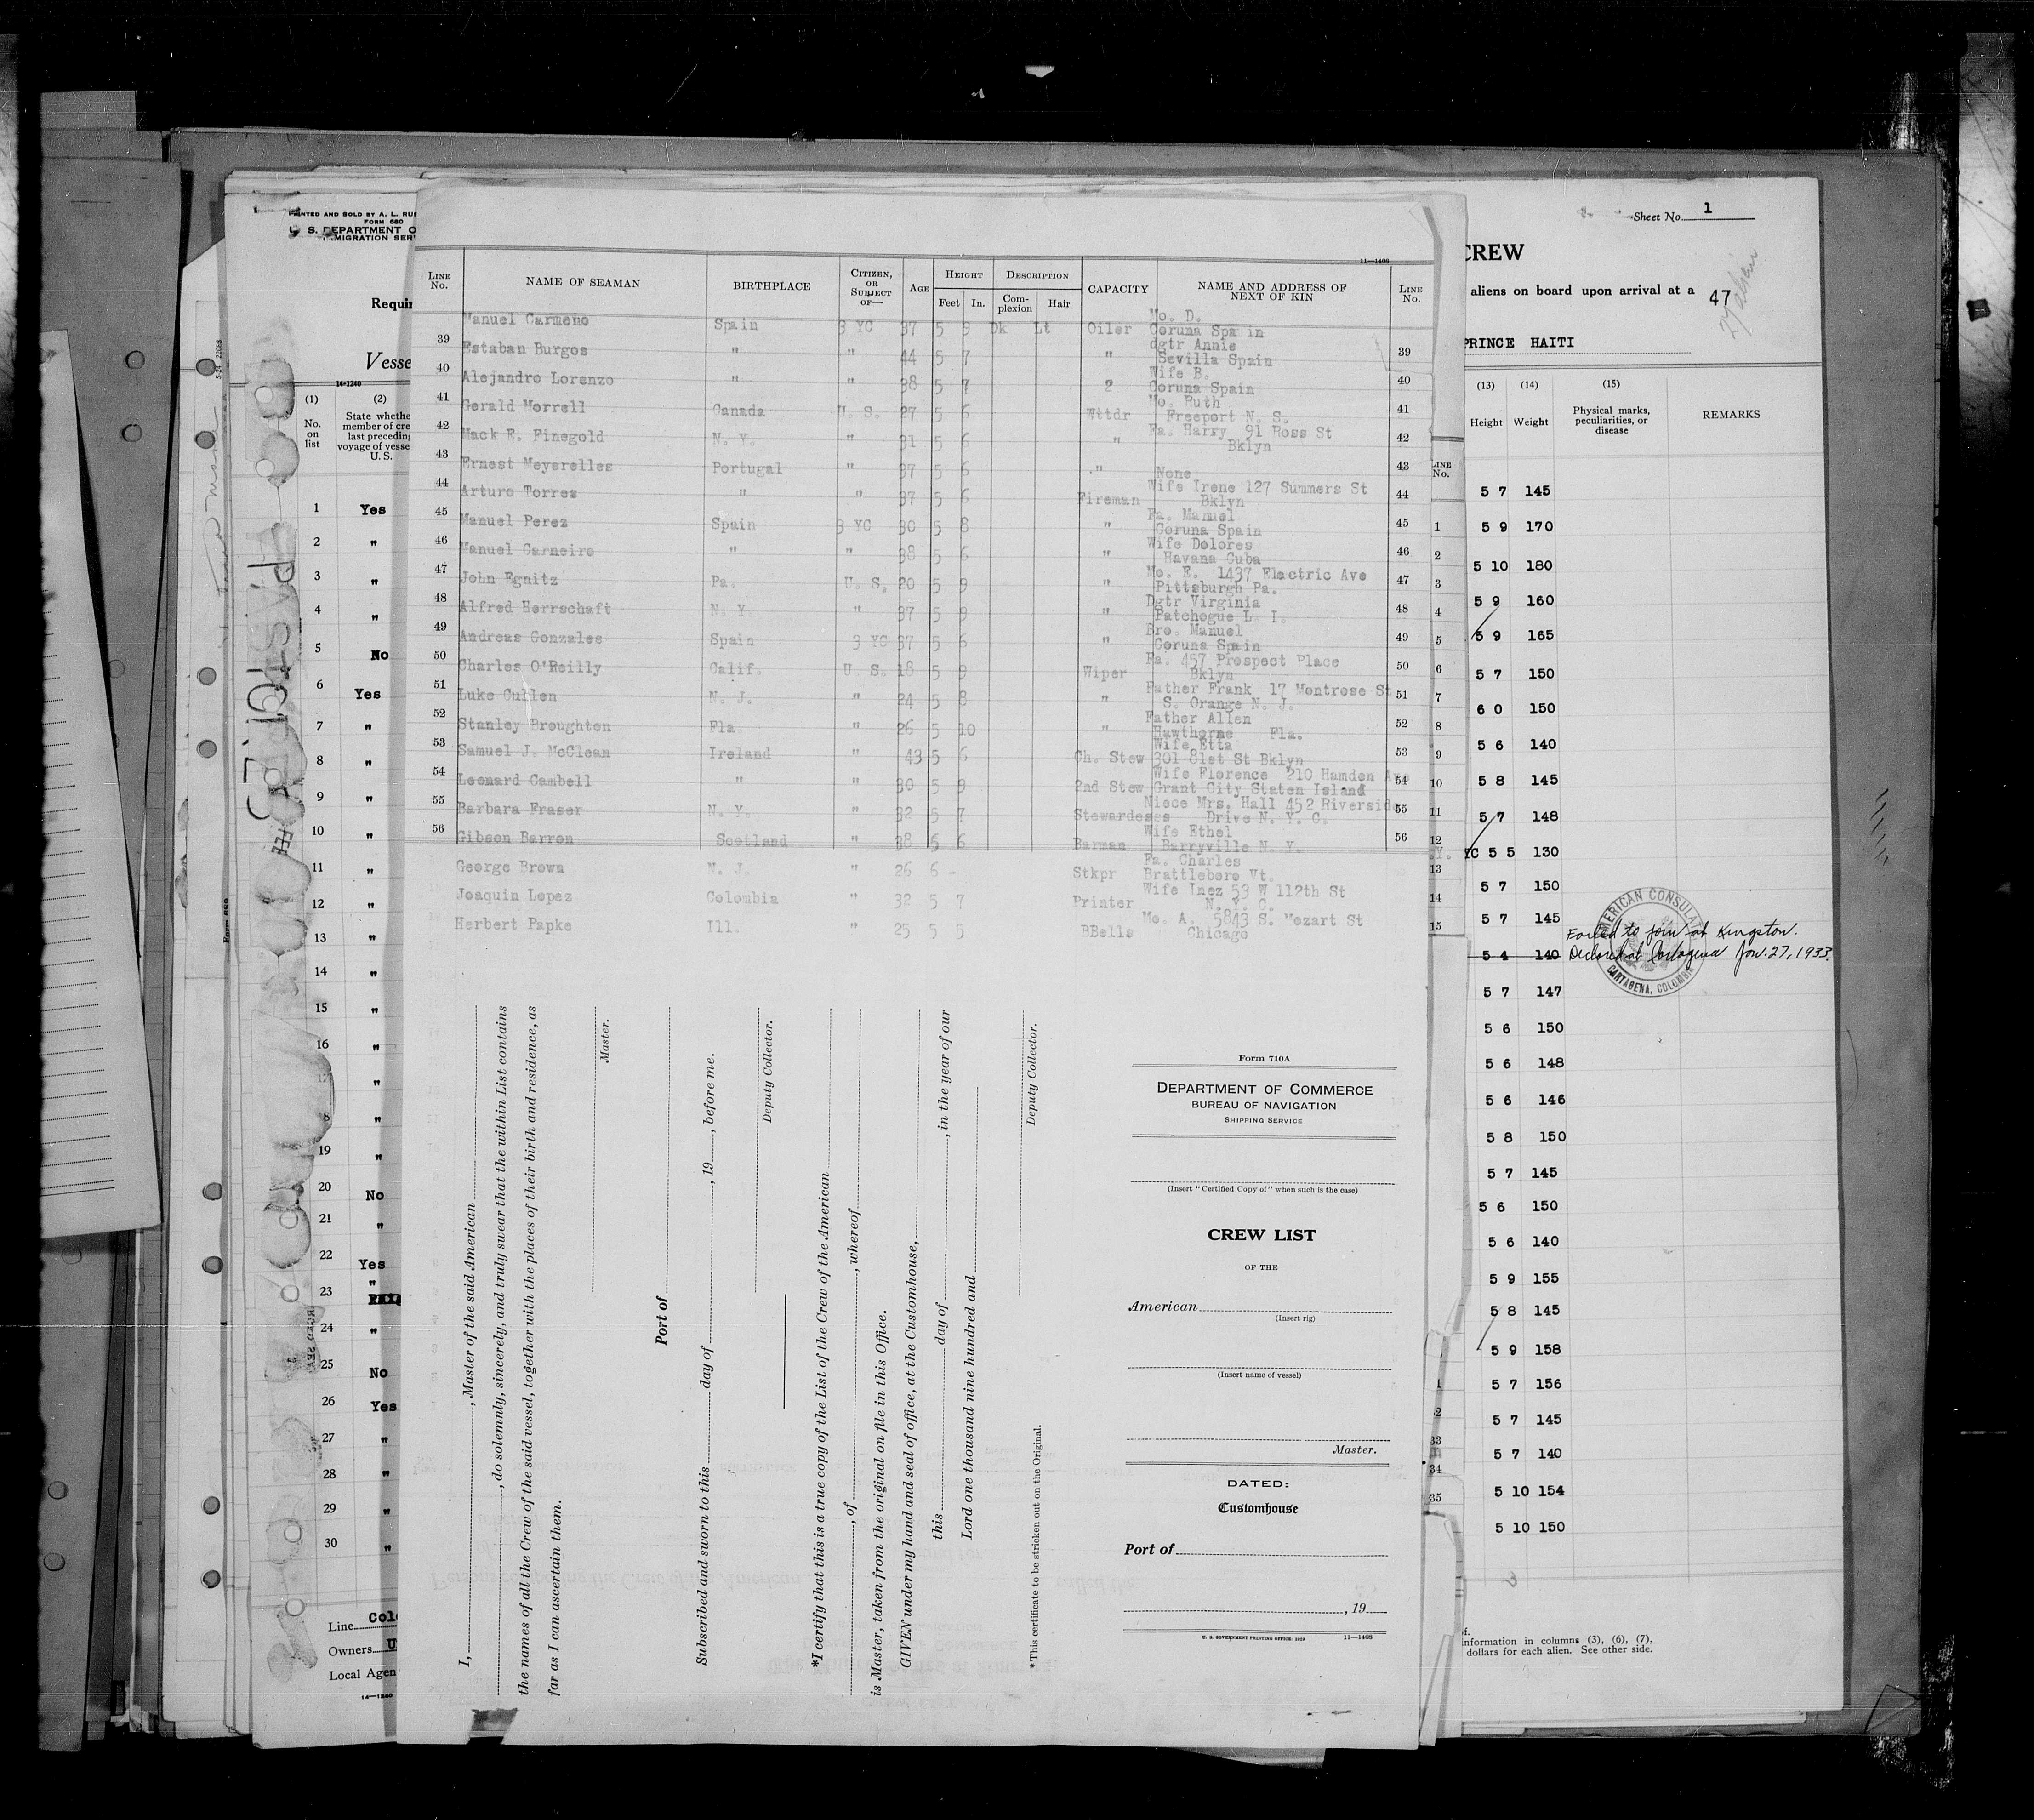 PRINTED AND SOLD BY A. L.
FORM 680
S. DEPARTMENT O
IMMIGRATION SER
Requi
Vesse
14-1240
(1)
No. on list
(2)
State whethe
member of cre
last preceding
voyage of vesse
U. S.
1 Yes
2 "
3 "
4 "
5 No
6 Yes
7 "
8 "
9 "
10 "
11 "
12 "
13 "
14 "
15 "
16 "
17 "
8 "
19 "
20 No
21 "
22 Yes
23 "
24 "
25 No
26 Yes
27 "
28 "
29 "
30 "
Line Colo
Owners U
Local Agen
14-1240
11-1408
LINE No.
NAME OF SEAMAN
BIRTHPLACE
CITIZEN, OR SUBJECT OF—
AGE
HEIGHT
Feet In.
DESCRIPTION
Complexion Hair
CAPACITY
NAME AND ADDRESS OF NEXT OF KIN
LINE No.
Manuel Carmeno Spain 3 YC 37 5 9 Dk Lt Oiler Mo. D. Coruna Spain
39 Estaban Burgos " " 44 5 7 " dgtr Annie Sevilla Spain 39
40 Alejandro Lorenzo " " 38 5 7 " Wife B. Coruna Spain 40
41 Gerald Morrell Canada U. S. 27 5 6 Wttdr Mo. Ruth Freeport N. S. 41
42 Mack E. Finegold N. Y. " 31 5 6 " Fa. Harry 91 Ross St Bklyn 42
43 Ernest Meyerelles Portugal " 37 5 6 " None 43
44 Arturo Torres " " 37 5 6 Fireman Wife Irene 127 Summers St Bklyn 44
45 Manuel Perez Spain 3 YC 30 5 8 " Fa. Manuel Coruna Spain 45
46 Manuel Carneiro " " 38 5 6 " Wife Dolores Havana Cuba 46
47 John Egnitz Pa. U. S. 20 5 9 " Mo. E. 1437 Electric Ave Pittsburgh Pa. 47
48 Alfred Herrschaft N. Y. " 37 5 9 " Dgtr Virginia Patchogue L. I. 48
49 Andreas Gonzales Spain 3 YC 37 5 6 " Bro. Manuel Coruna Spain 49
50 Charles O'Reilly Calif. U. S. 18 5 9 Wiper Fa. 457 Prospect Place Bklyn 50
51 Luke Cullen N. J. " 24 5 8 " Father Frank 17 Montrose St S. Orange N. J. 51
52 Stanley Broughton Fla. " 26 5 10 " Father Allen Hawthorne Fla. 52
53 Samuel J. McClean Ireland " 43 5 6 Ch. Stew Wife Etta 301 81st St Bklyn 53
54 Leonard Cambell " " 30 5 9 2nd Stew Wife Florence 210 Hamden Grant City Staten Island 54
55 Barbara Fraser N. Y. " 32 5 7 Stewardess Niece Mrs. Hall 452 Riverside Drive N. Y. C. 55
56 Gibson Barron Scotland " 38 5 6 Barman Wife Ethel Barryville N. Y. 56
George Brown N. J. " 26 6 - Stkpr Fa. Charles Brattleboro Vt.
Joaquin Lopez Colombia " 32 5 7 Printer Wife Inez 53 W 112th St N. Y. C.
Herbert Papke Ill. " 25 5 5 BBells Mo. A. 5843 S. Mozart St Chicago
I, , Master of the said American
, do solemnly, sincerely, and truly swear that the within List contains
the names of all the Crew of the said vessel, together with the places of their birth and residence, as
far as I can ascertain them.
Master.
Port of
Subscribed and sworn to this day of , 19 , before me.
Deputy Collector.
*I certify that this is a true copy of the List of the Crew of the American
, of , whereof
is Master, taken from the original on file in this Office.
GIVEN under my hand and seal of office, at the Customhouse,
this day of , in the year of our
Lord one thousand nine hundred and
Deputy Collector.
*This certificate to be stricken out on the Original.
Form 710A
DEPARTMENT OF COMMERCE
BUREAU OF NAVIGATION
SHIPPING SERVICE
(Insert "Certified Copy of" when such is the case)
CREW LIST
OF THE
American
(Insert rig)
(Insert name of vessel)
Master.
DATED:
Customhouse
Port of
, 19
U. S. GOVERNMENT PRINTING OFFICE: 1929 11-1408
Sheet No. 1
CREW
aliens on board upon arrival at a
47
PRINCE HAITI
(13) Height
(14) Weight
(15) Physical marks, peculiarities, or disease
REMARKS
LINE No.
1
2
3
4
5
6
7
8
9
10
11
12
13
14
15
33
34
35
5 7 145
5 9 170
5 10 180
5 9 160
5 9 165
5 7 150
6 0 150
5 6 140
5 8 145
5 7 148
YC 5 5 130
5 7 150
5 7 145
5 4 140
Failed to join at Kingston.
Declared at Cartagena Jan. 27, 1933.
AMERICAN CONSULA
CARTAGENA, COLOMBIA
5 7 147
5 6 150
5 6 148
5 6 146
5 8 150
5 7 145
5 6 150
5 6 140
5 9 155
5 8 145
5 9 158
5 7 156
5 7 145
5 7 140
5 10 154
5 10 150
nformation in columns (3), (6), (7),
dollars for each alien. See other side.